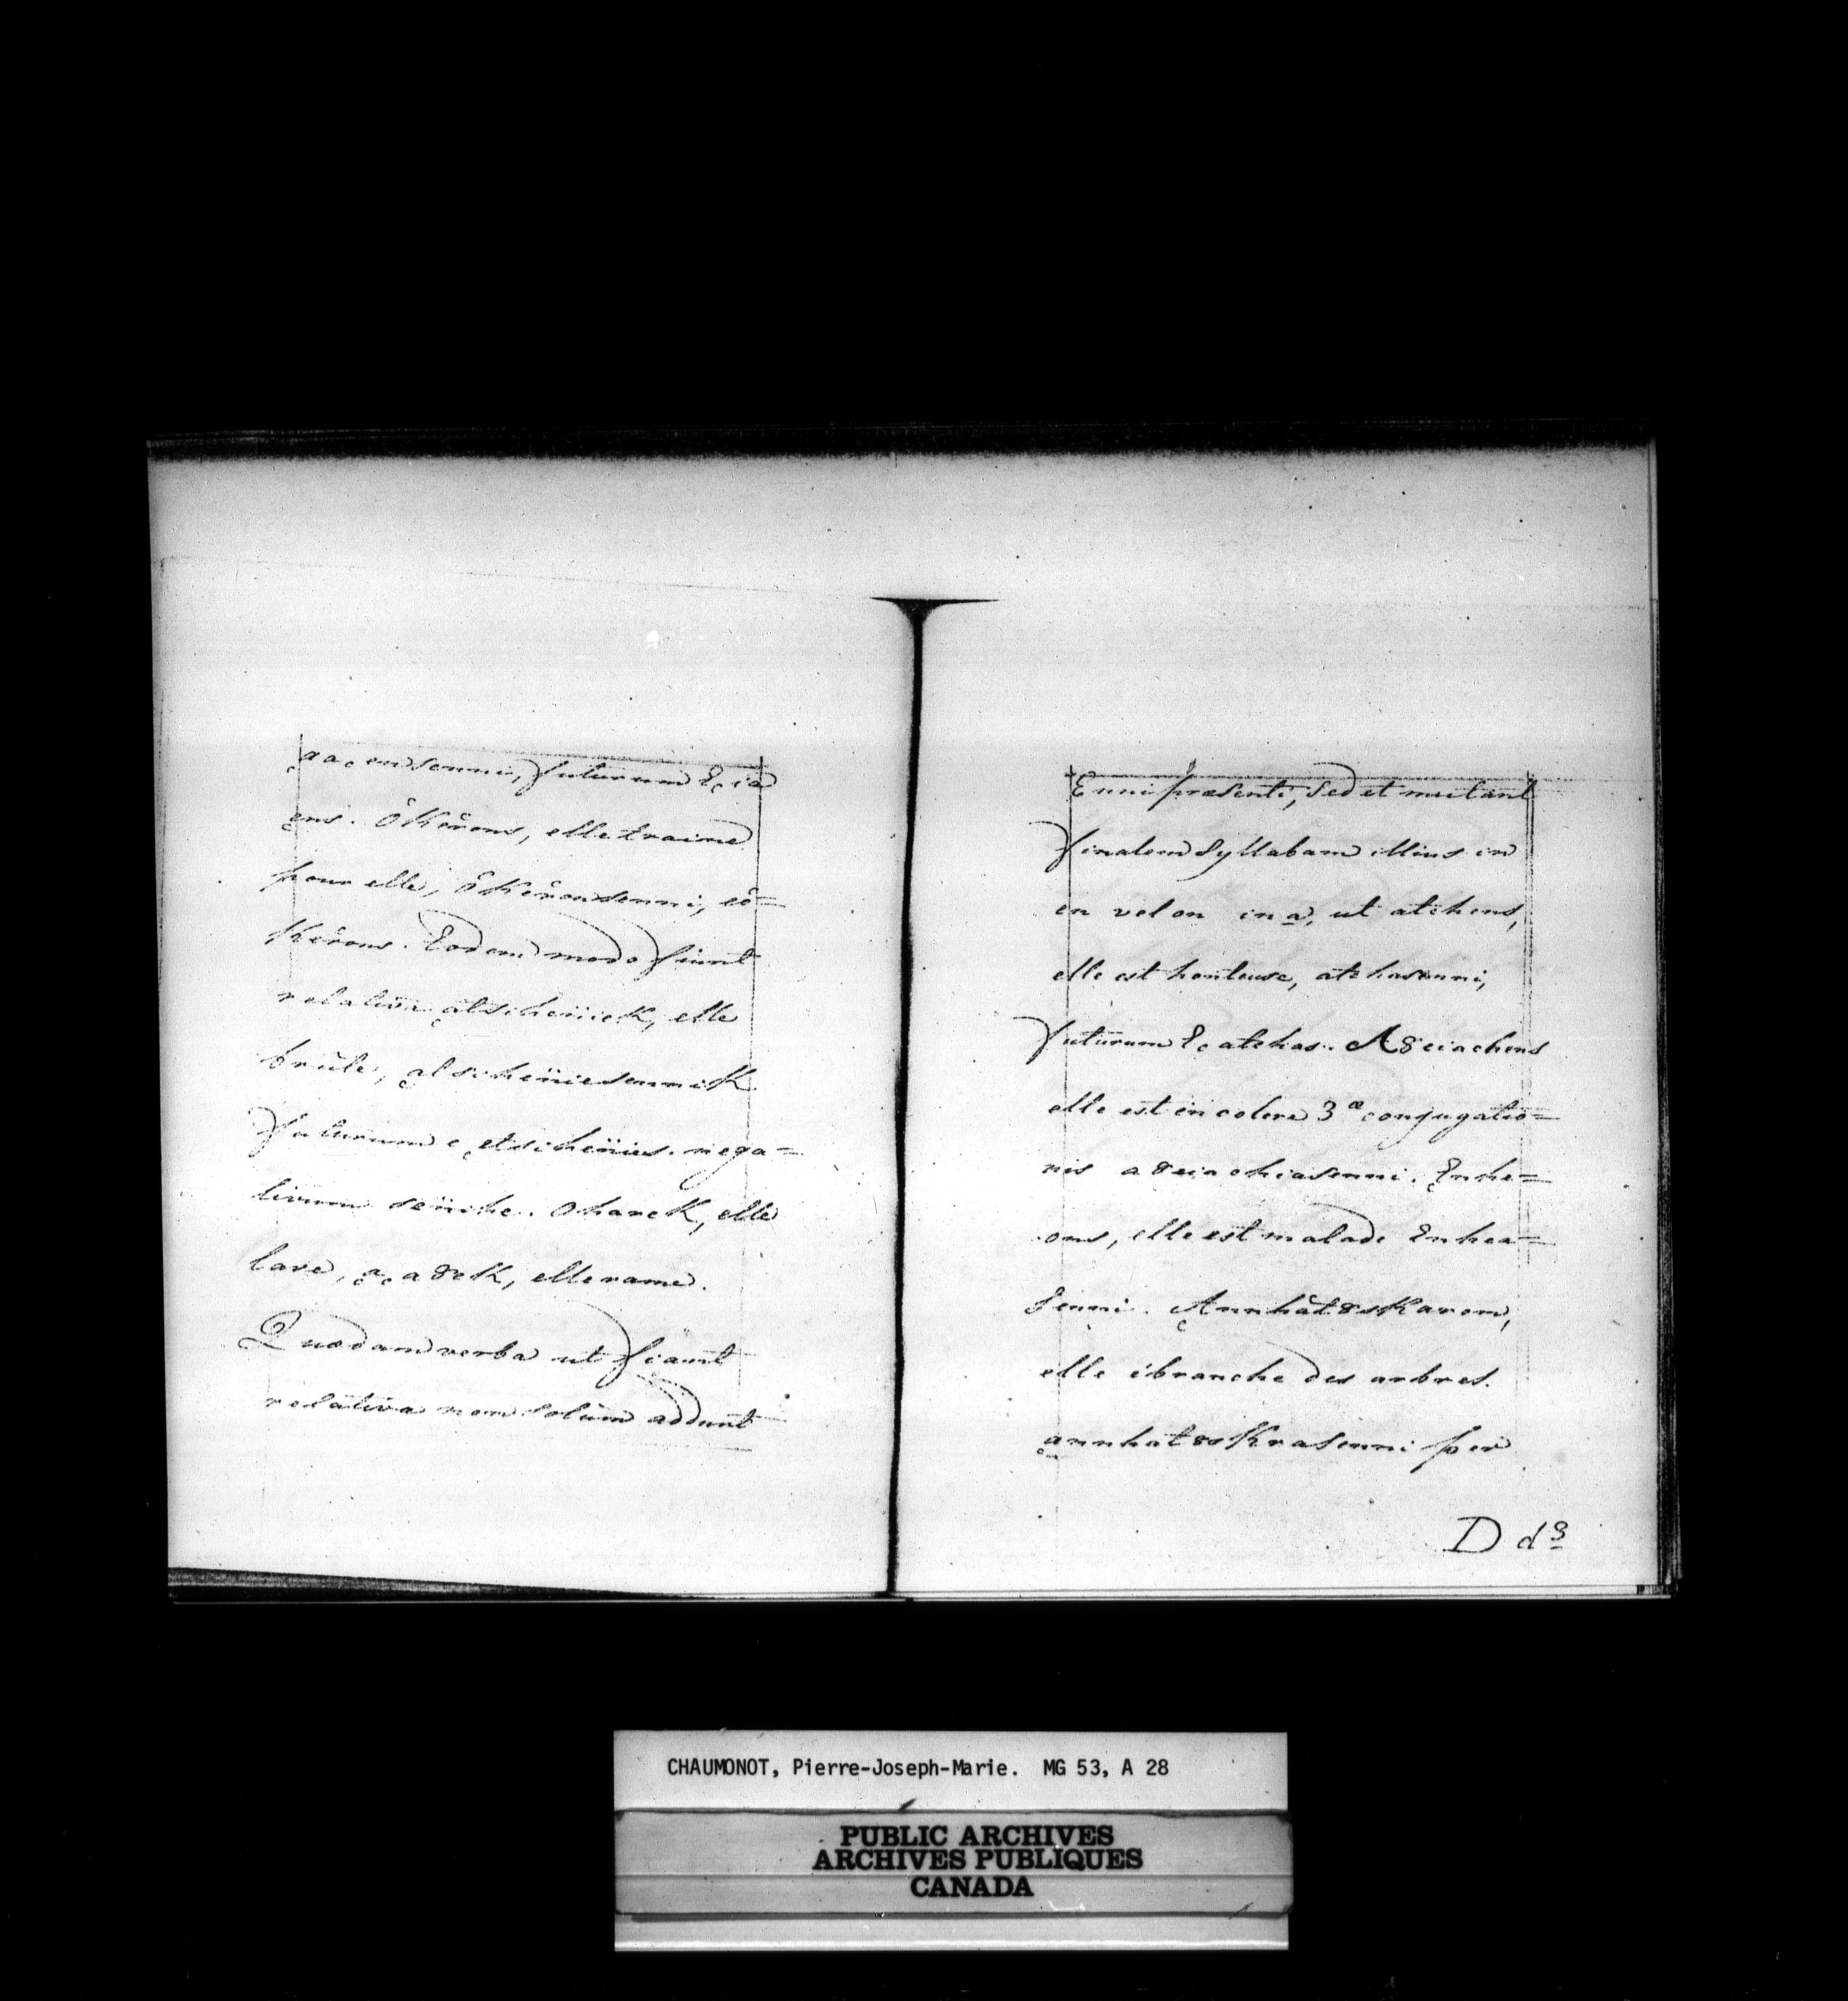 ąa꜀endenni, futurum E꜀ia
ęns. öKërons, elle traine
pour elle, öKëronsenni, eö=
Kërons. Eodem modo fiunt
relativa ątscheïieK, elle
brûle, ątscheïiesenniK
futurum e ętscheïies. nega=
tivum seïiche. OhareK, elle
lave, ą꜀a8eK, elle rame.
Quædam verba ut fiant
relativa non solùm addunt
Enni præsenti, sed et mutant
finalem Syllabam illius in
en vel on in a, ut atehens,
elle est honteuse, atehasenni,
futurum E꜀atehas. A8eiachens
elle est en colere 3æ conjugatio=
nis a8eiachiasenni. Enhe=
ons, elle est malade Enhea=
Senni. Annhät8sKaron,
elle ébranche des arbres.
ąnnhat8sKrasenni per
D d3
CHAUMONOT, Pierre-Joseph-Marie. MG 53, A 28
PUBLIC ARCHIVES
ARCHIVES PUBLIQUES
CANADA